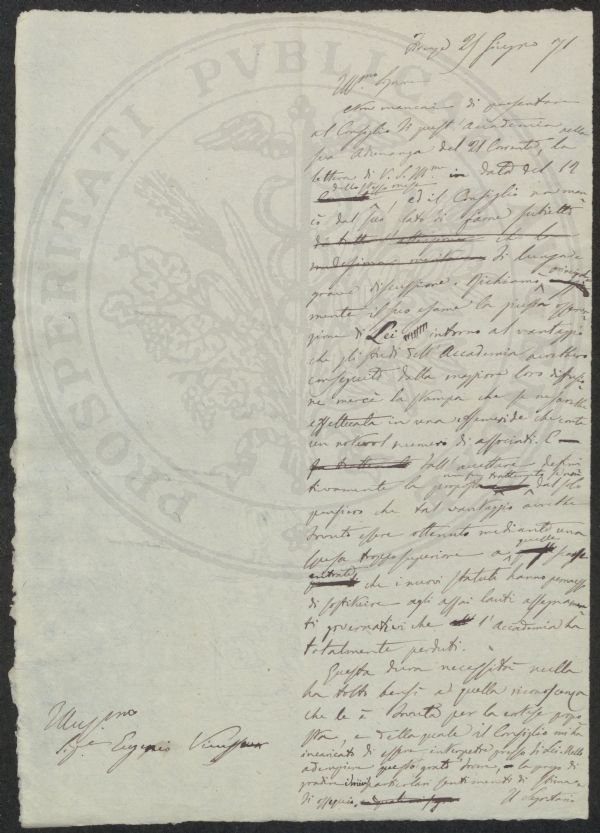 PROSPERITATI PVBLICAE
Firenze 25 Giugno 71
Ill.mo Signore
Non mancai di presentare
al Consiglio di quest'Accademia nella
sua Adunanza del 21 Corrente, la
lettera di V. S. Ill.ma in data del 12
dello stesso mese
ed il Consiglio non man
cò dal suo lato di farne subietto
che la
medesima di lunga e
grave discussione. Richiamò
mente il suo esame la
zione di Lei intorno al vantaggio
che gli studi dell'Accademia avrebbero
conseguito dalla maggiore loro diffusio
ne mercè la stampa che se ne sarebbe
effettuata in una effemeride che conta
un notevol numero di associati. E
dall'accettare defini
tivamente la proposta dal solo
pensiero che tal vantaggio avrebbe
dovuto essere ottenuto mediante una
spesa troppo superiore a quelle
entrate che i nuovi statuti hanno permesso
di sostituire agli assai lauti assegnamen
ti governativi che l'Accademia ha
totalmente perduti.
Questa dura necessità nulla
ha tolto bensì a quella riconoscenza
che le è dovuta per la cortese propo
sta, e della quale il Consiglio mi ha
incaricato di essere interpetre presso di Lei. Nello
adempiere questo grato dovere, la prego di
gradire i miei particolari sentimenti di stima e
di ossequio.
Il Segretario
Illus.mo
Sig.e Eugenio